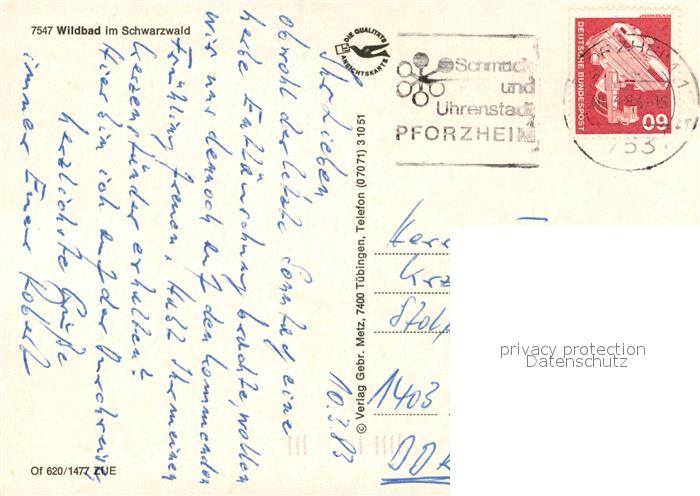 7547 Wildbad im Schwarzwald
DIE QUALITÄTS
ANSICHTSKARTE
Schmuck
und
Uhrenstadt
PFORZHEIM
DEUTSCHE BUNDESPOST
60
753
10.3.83
Ihr Lieben
obwohl der letzte Sonntag eine
herbe Enttäuschung brachte, wollen
wir uns dennoch auf den kommenden
Frühling freuen. Habt Ihr meinen
herzenspfünder erhalten?
Hier bin ich auf der Durchreise
herzlichste Grüße
immer Euer Robert
© Verlag Gebr. Metz, 7400 Tübingen, Telefon (07071) 31051
Of 620/1477 ZUE
1403
DDR
privacy protection
Datenschutz